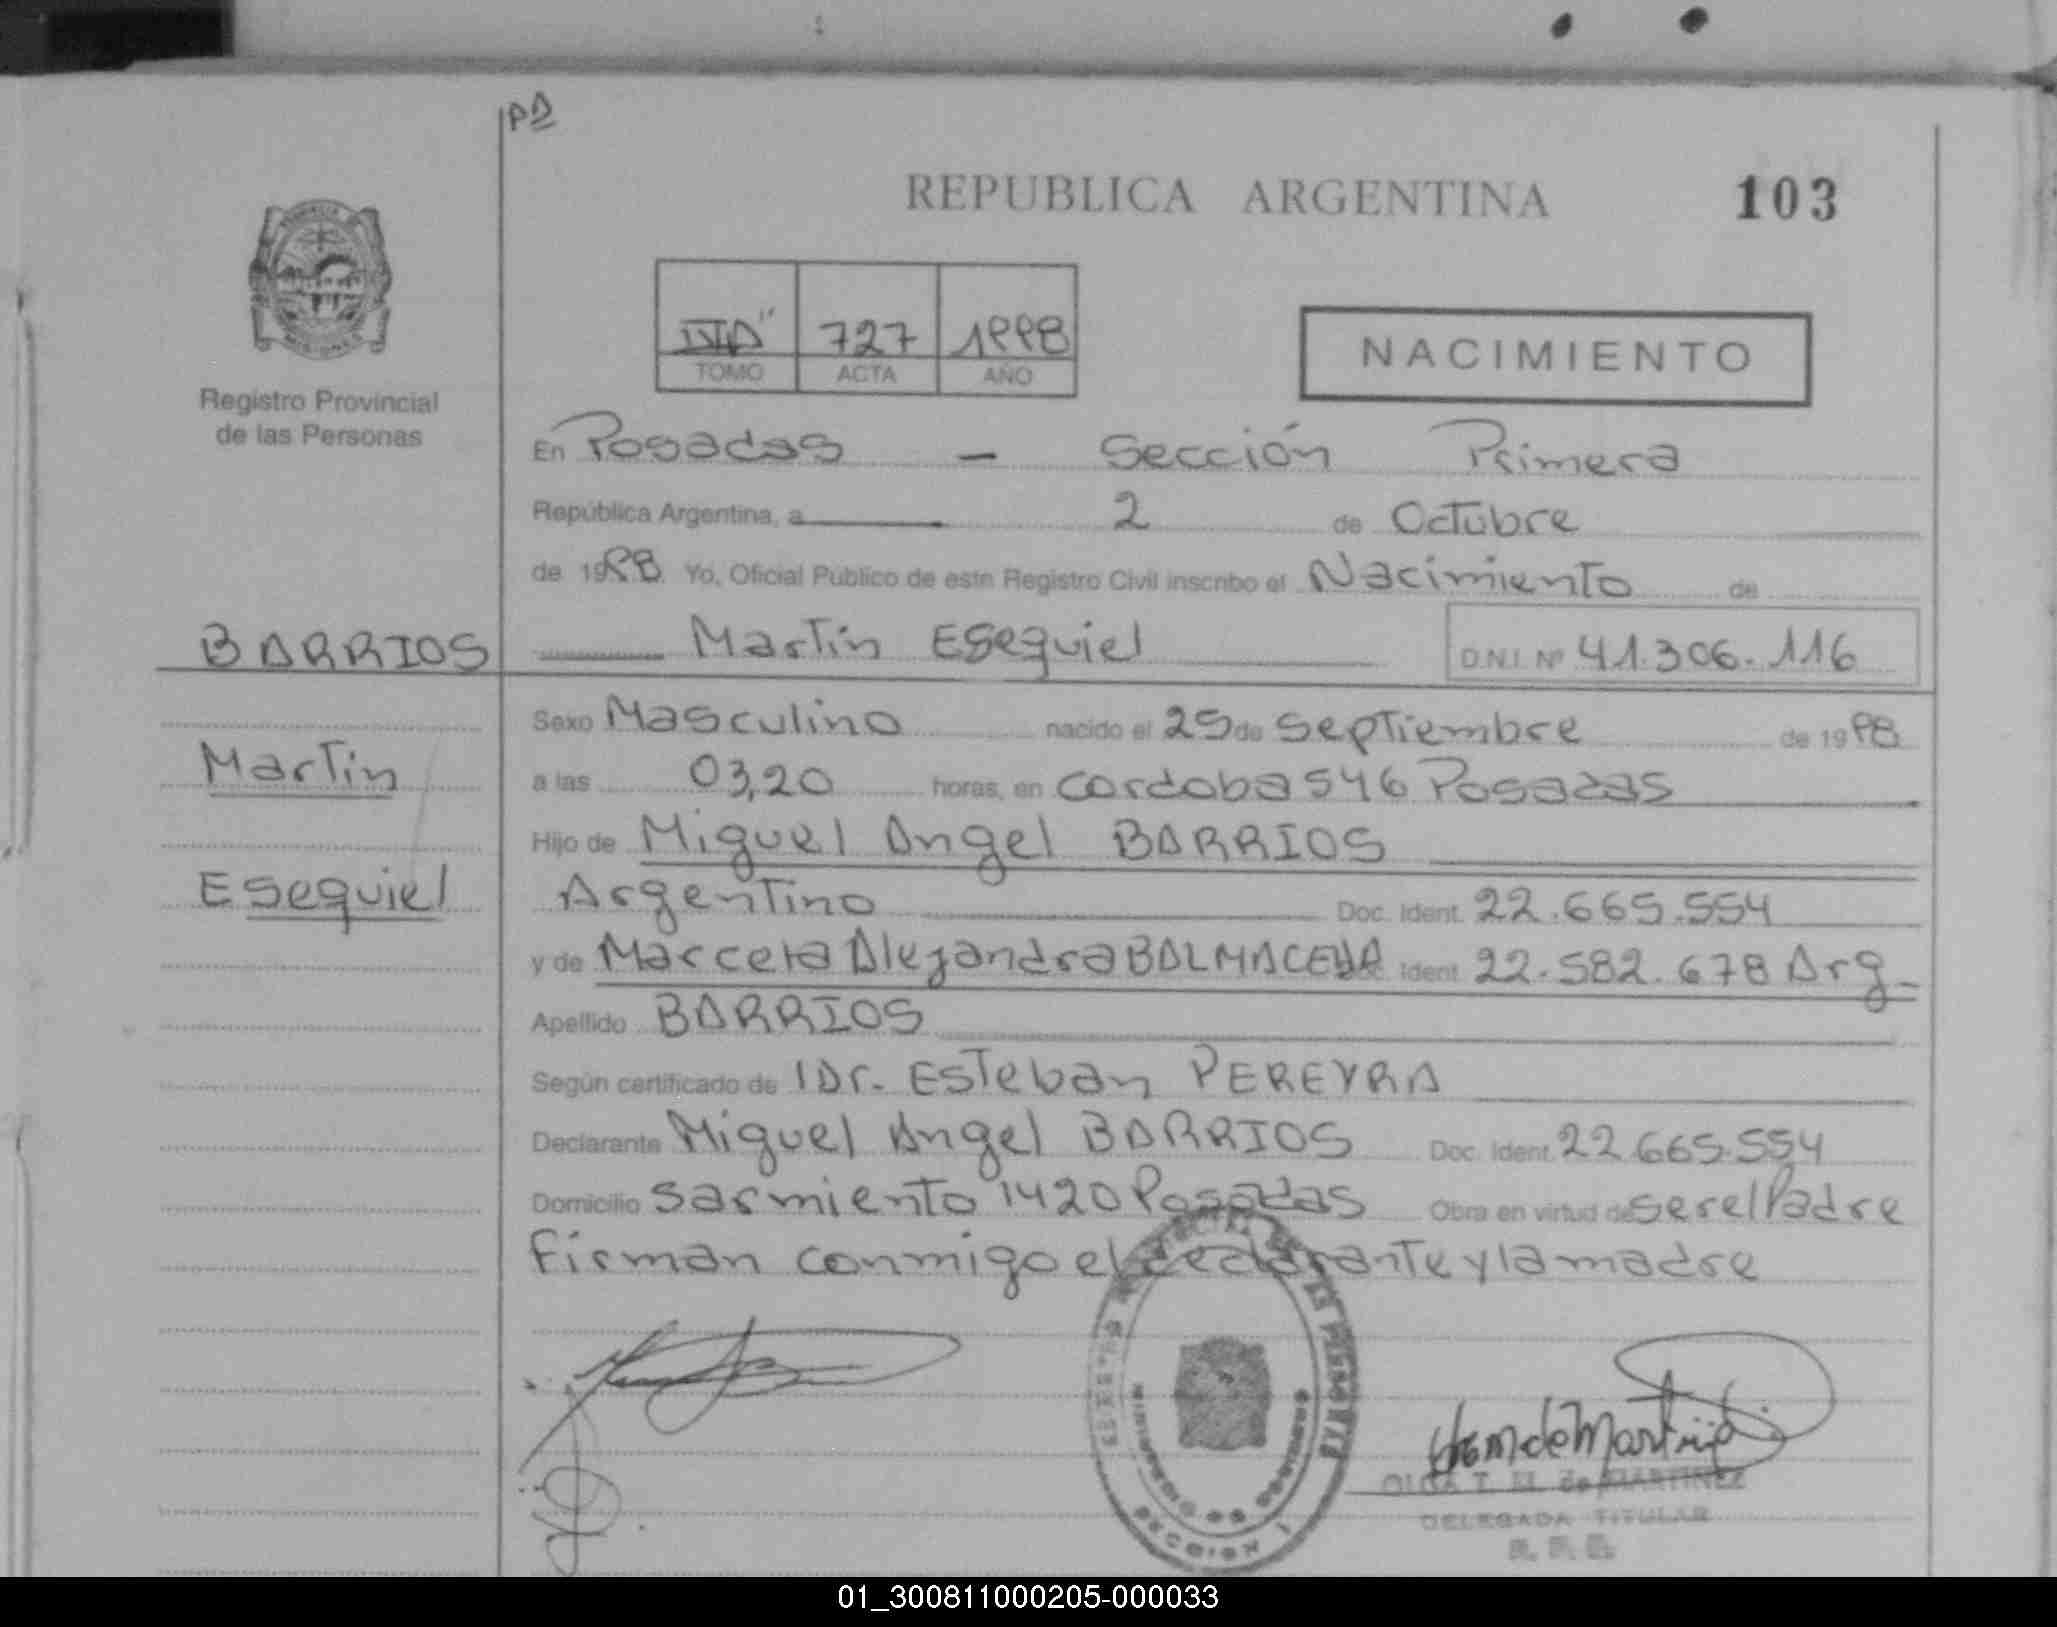 PD
REPUBLICA ARGENTINA 103
727 1998
TOMO ACTA AÑO
NACIMIENTO
Registro Provincial
de las Personas
En Posadas - Sección Primera
República Argentina, a 2 de Octubre
de 1998 Yo, Oficial Público de este Registro Civil inscribo el Nacimiento de
BARRIOS Martín Esequiel D.N.I. Nº 41.306.116
Sexo Masculino nacido el 25 de Septiembre de 1998
Martín
a las 03,20 horas, en Cordoba 546 Posadas
Hijo de Miguel Angel BARRIOS
Esequiel
Argentino Doc. Ident. 22.665.554
y de Marcela Alejandra BALMACEDA Doc. Ident. 22.582.678 Arg.
Apellido BARRIOS
Según certificado de Dr. Esteban PEREYRA
Declarante Miguel Angel BARRIOS Doc. Ident. 22.665.554
Domicilio Sarmiento 1420 Posadas Obra en virtud de ser el Padre
Firman conmigo el declarante y la madre
OLGA T. M. de MARTINEZ
DELEGADA TITULAR
SECCION 1
01_300811000205-000033